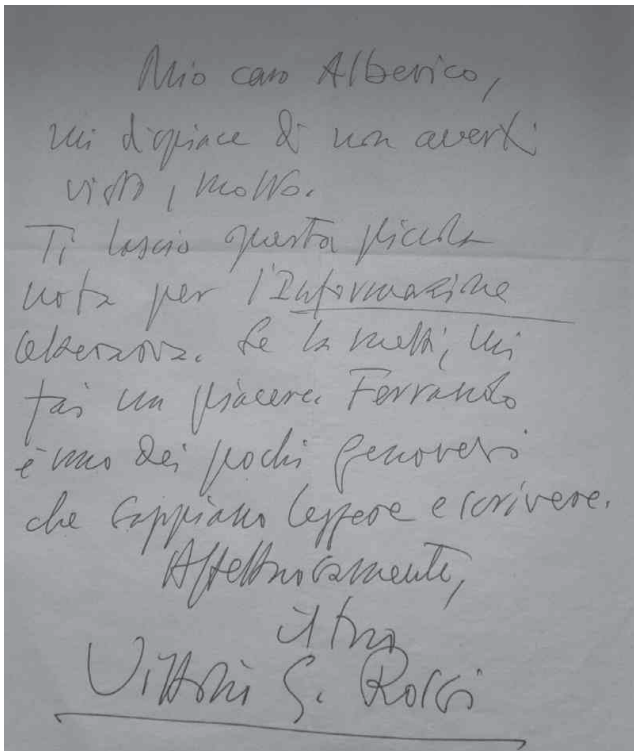 Mio caro Alberico,
mi dispiace di non averti
visto, molto.
Ti lascio questa piccola
nota per l'Informazione
letteraria. Se la metti, mi
fai un piacere. Ferrando
è uno dei pochi genovesi
che sappiano leggere e scrivere.
Affettuosamente,
il tuo
Vittorio G. Rossi